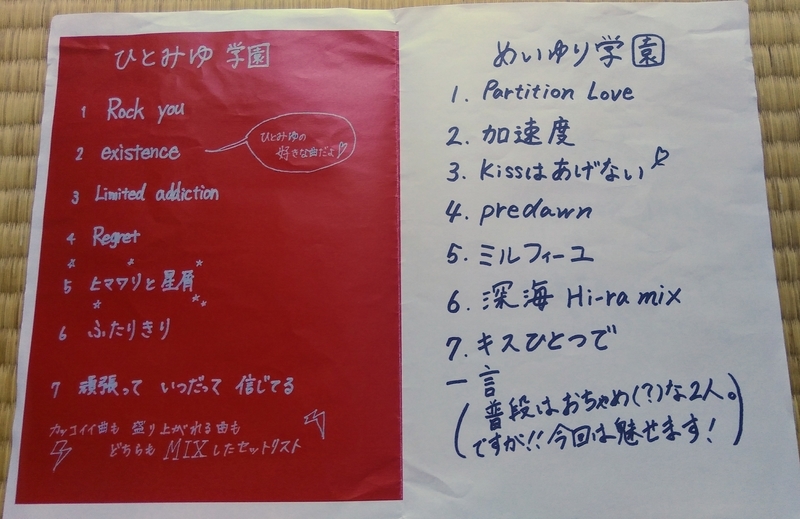 ひとみゆ学園
1 Rock you
2 existence
ひとみゆの
好きな曲だよ♡
3 Limited addiction
4 Regret
5 ヒマワリと星屑
6 ふたりきり
7 頑張って いつだって 信じてる
カッコイイ曲も 盛り上がれる曲も
どちらも MIXしたセットリスト
めいゆり学園
1. Partition Love
2. 加速度
3. Kissはあげない♡
4. predawn
5. ミルフィーユ
6. 深海 Hi-ra mix
7. キスひとつで
一言
(普段はおちゃめ(?)な2人。
ですが!!今回は魅せます!)